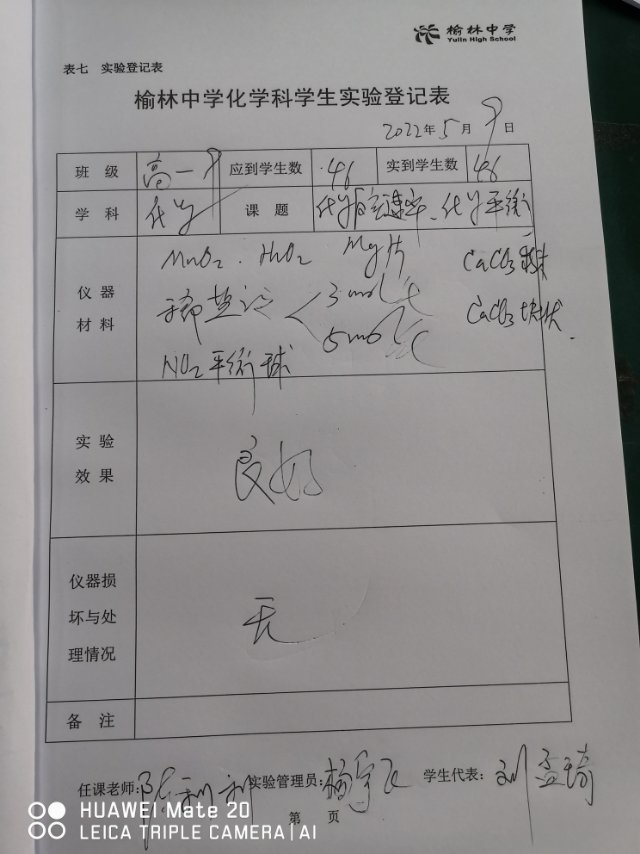 榆林中学
Yulin High School
表七 实验登记表
榆林中学化学科学生实验登记表
2022年5月9日
班级 高一9 应到学生数 46 实到学生数 46
学科 化学 课题 化学反应速率、化学平衡
仪器材料
MnO2. H2O2 Mg片 CaCO3
稀盐酸 3mol/L CaCO3 块状
5mol/L
NO2平衡球
实验效果
良好
仪器损坏与处理情况
无
备注
任课老师: 实验管理员: 杨宇飞 学生代表: 刘孟琦
第 页
HUAWEI Mate 20
LEICA TRIPLE CAMERA | AI